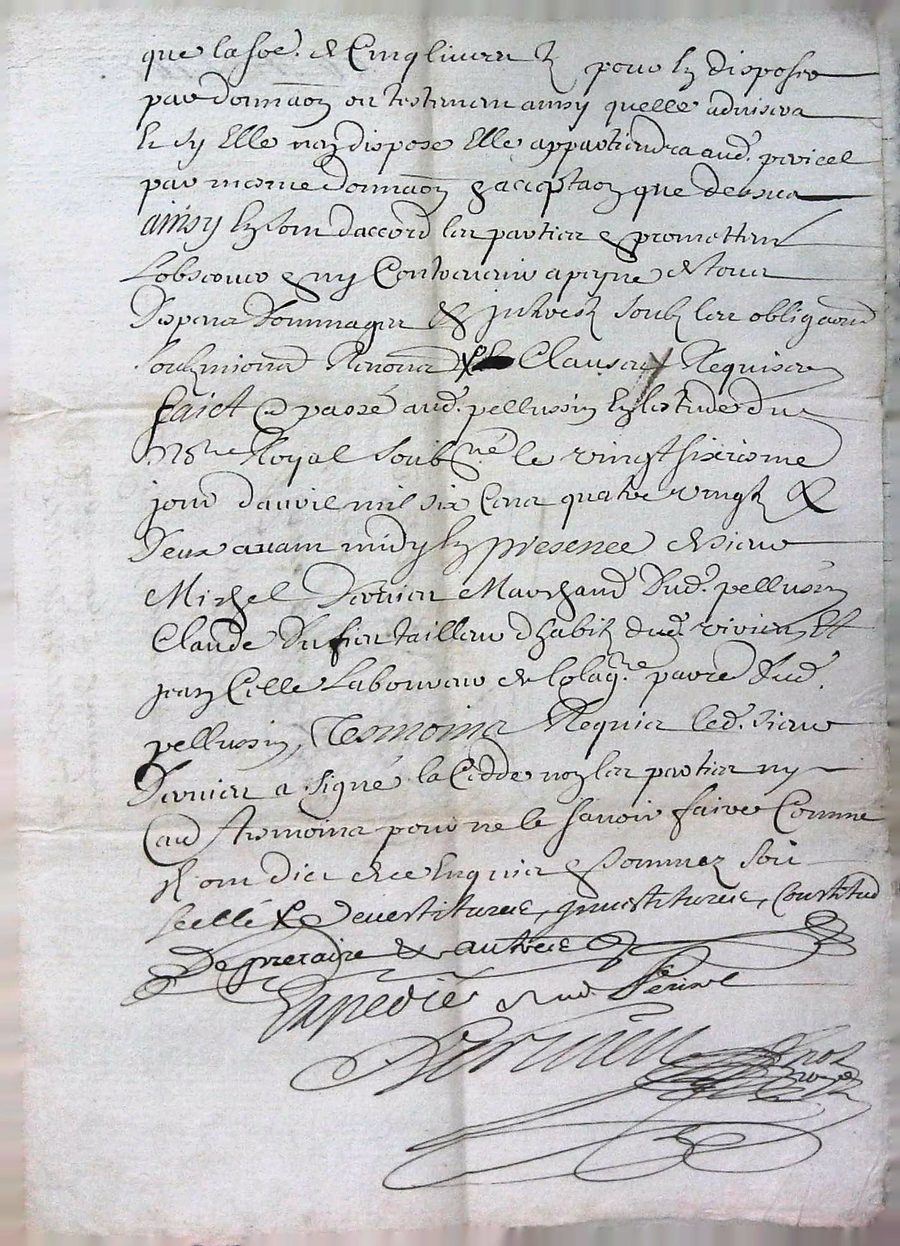 que la so͞e. de Cinq livres Et pour En disposer
par donn͞aon ou testament ainsy quelle advisera
Et sy Elle n'en dispose Elle appartiendra aud. pericel
par mesme donn͞aon & acceptaon que dessus
ainsy En sont daccord les parties & promettent
Lobserver & ny Contrevenir a peyne de tous
Despens Dommages & jnterestz soubz les oblig͞aons
soubzmions Renons & Clauses Requises
faict & passé aud. pellussin En lestude du
no.re Royal soubsné le vingt sixiesme
jour davril mil six Cens quatre vingtz &
Deux avant midy En presence de sieur
Michel Dervieu Marchand Dud. pellussin
Claude Dufieu tailleur dhabitz dud. virieu Et
jean Cille Laboureur de
pellussin, Tesmoins Requis led. sieur
Dervieu a signé la Cedde non les parties ny
tesmoins pour ne le savoir faire Comme
Ilz ont dict de ce Enquis & sommez soit
scellé & Devestitures, jnvestitures, Constitud
De precaire & autres
Expedié aud. Perisel